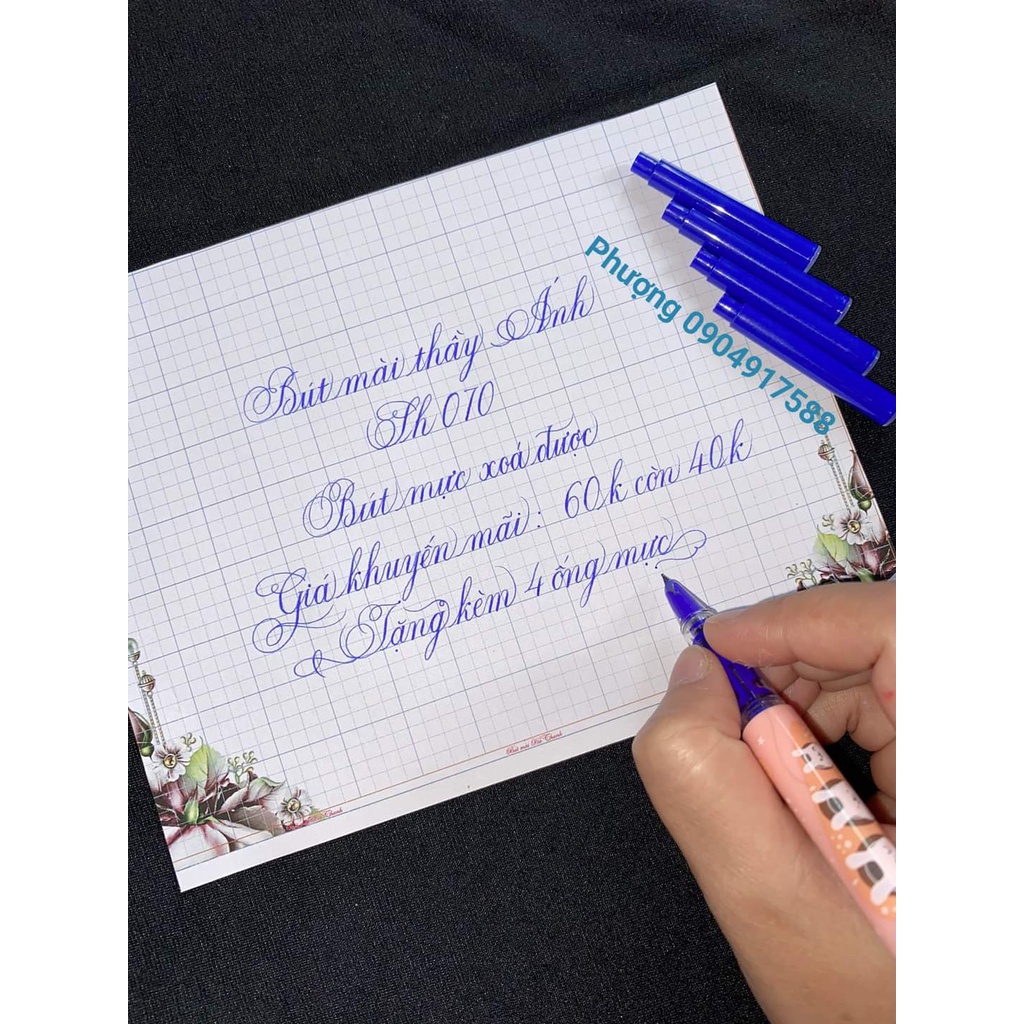 Bút mài thầy Ánh
Sh 070
Bút mực xoá được
Giá khuyến mãi: 60k còn 40k
Tặng kèm 4 ống mực
Phượng 0904917588